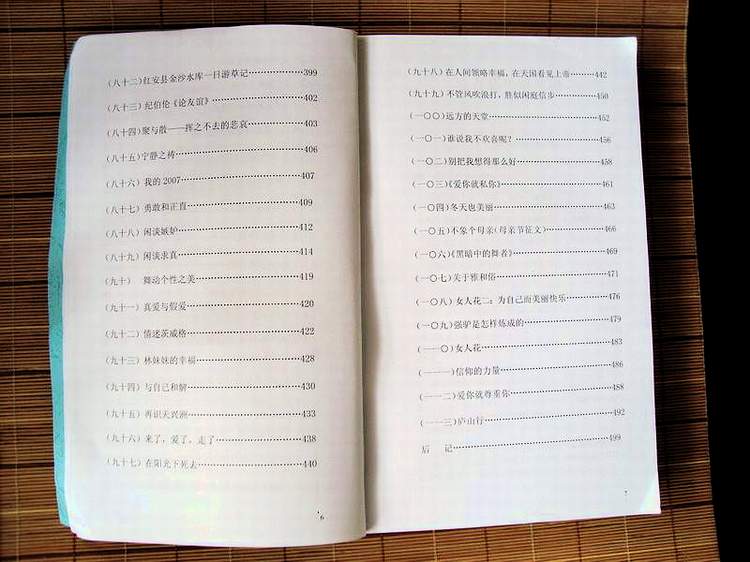 (八十二)红安县金沙水库一日游草记………………399
(八十三)纪伯伦《论友谊》………………402
(八十四)聚与散——挥之不去的悲哀………………403
(八十五)宁静之祷………………406
(八十六)我的2007………………407
(八十七)勇敢和正直………………409
(八十八)闲谈嫉妒………………412
(八十九)闲谈求真………………414
(九十) 舞动个性之美………………419
(九十一)真爱与假爱………………420
(九十二)情迷茨威格………………422
(九十三)林妹妹的幸福………………428
(九十四)与自己和解………………430
(九十五)再识天兴洲………………433
(九十六)来了,爱了,走了………………438
(九十七)在阳光下死去………………440
6
(九十八)在人间领略幸福,在天国看见上帝………………442
(九十九)不管风吹浪打,胜似闲庭信步………………450
(一〇〇)远方的天堂………………452
(一〇一)谁说我不欢喜呢?………………456
(一〇二)别把我想得那么好………………458
(一〇三)《爱你就私你》………………461
(一〇四)冬天也美丽………………463
(一〇五)不象个母亲(母亲节征文)………………466
(一〇六)《黑暗中的舞者》………………469
(一〇七)关于雅和俗………………471
(一〇八)女人花二:为自己而美丽快乐………………476
(一〇九)强驴是怎样炼成的………………479
(一一〇)女人花………………483
(一一一)信仰的力量………………486
(一一二)爱你就尊重你………………488
(一一三)庐山行………………492
后 记………………499
7